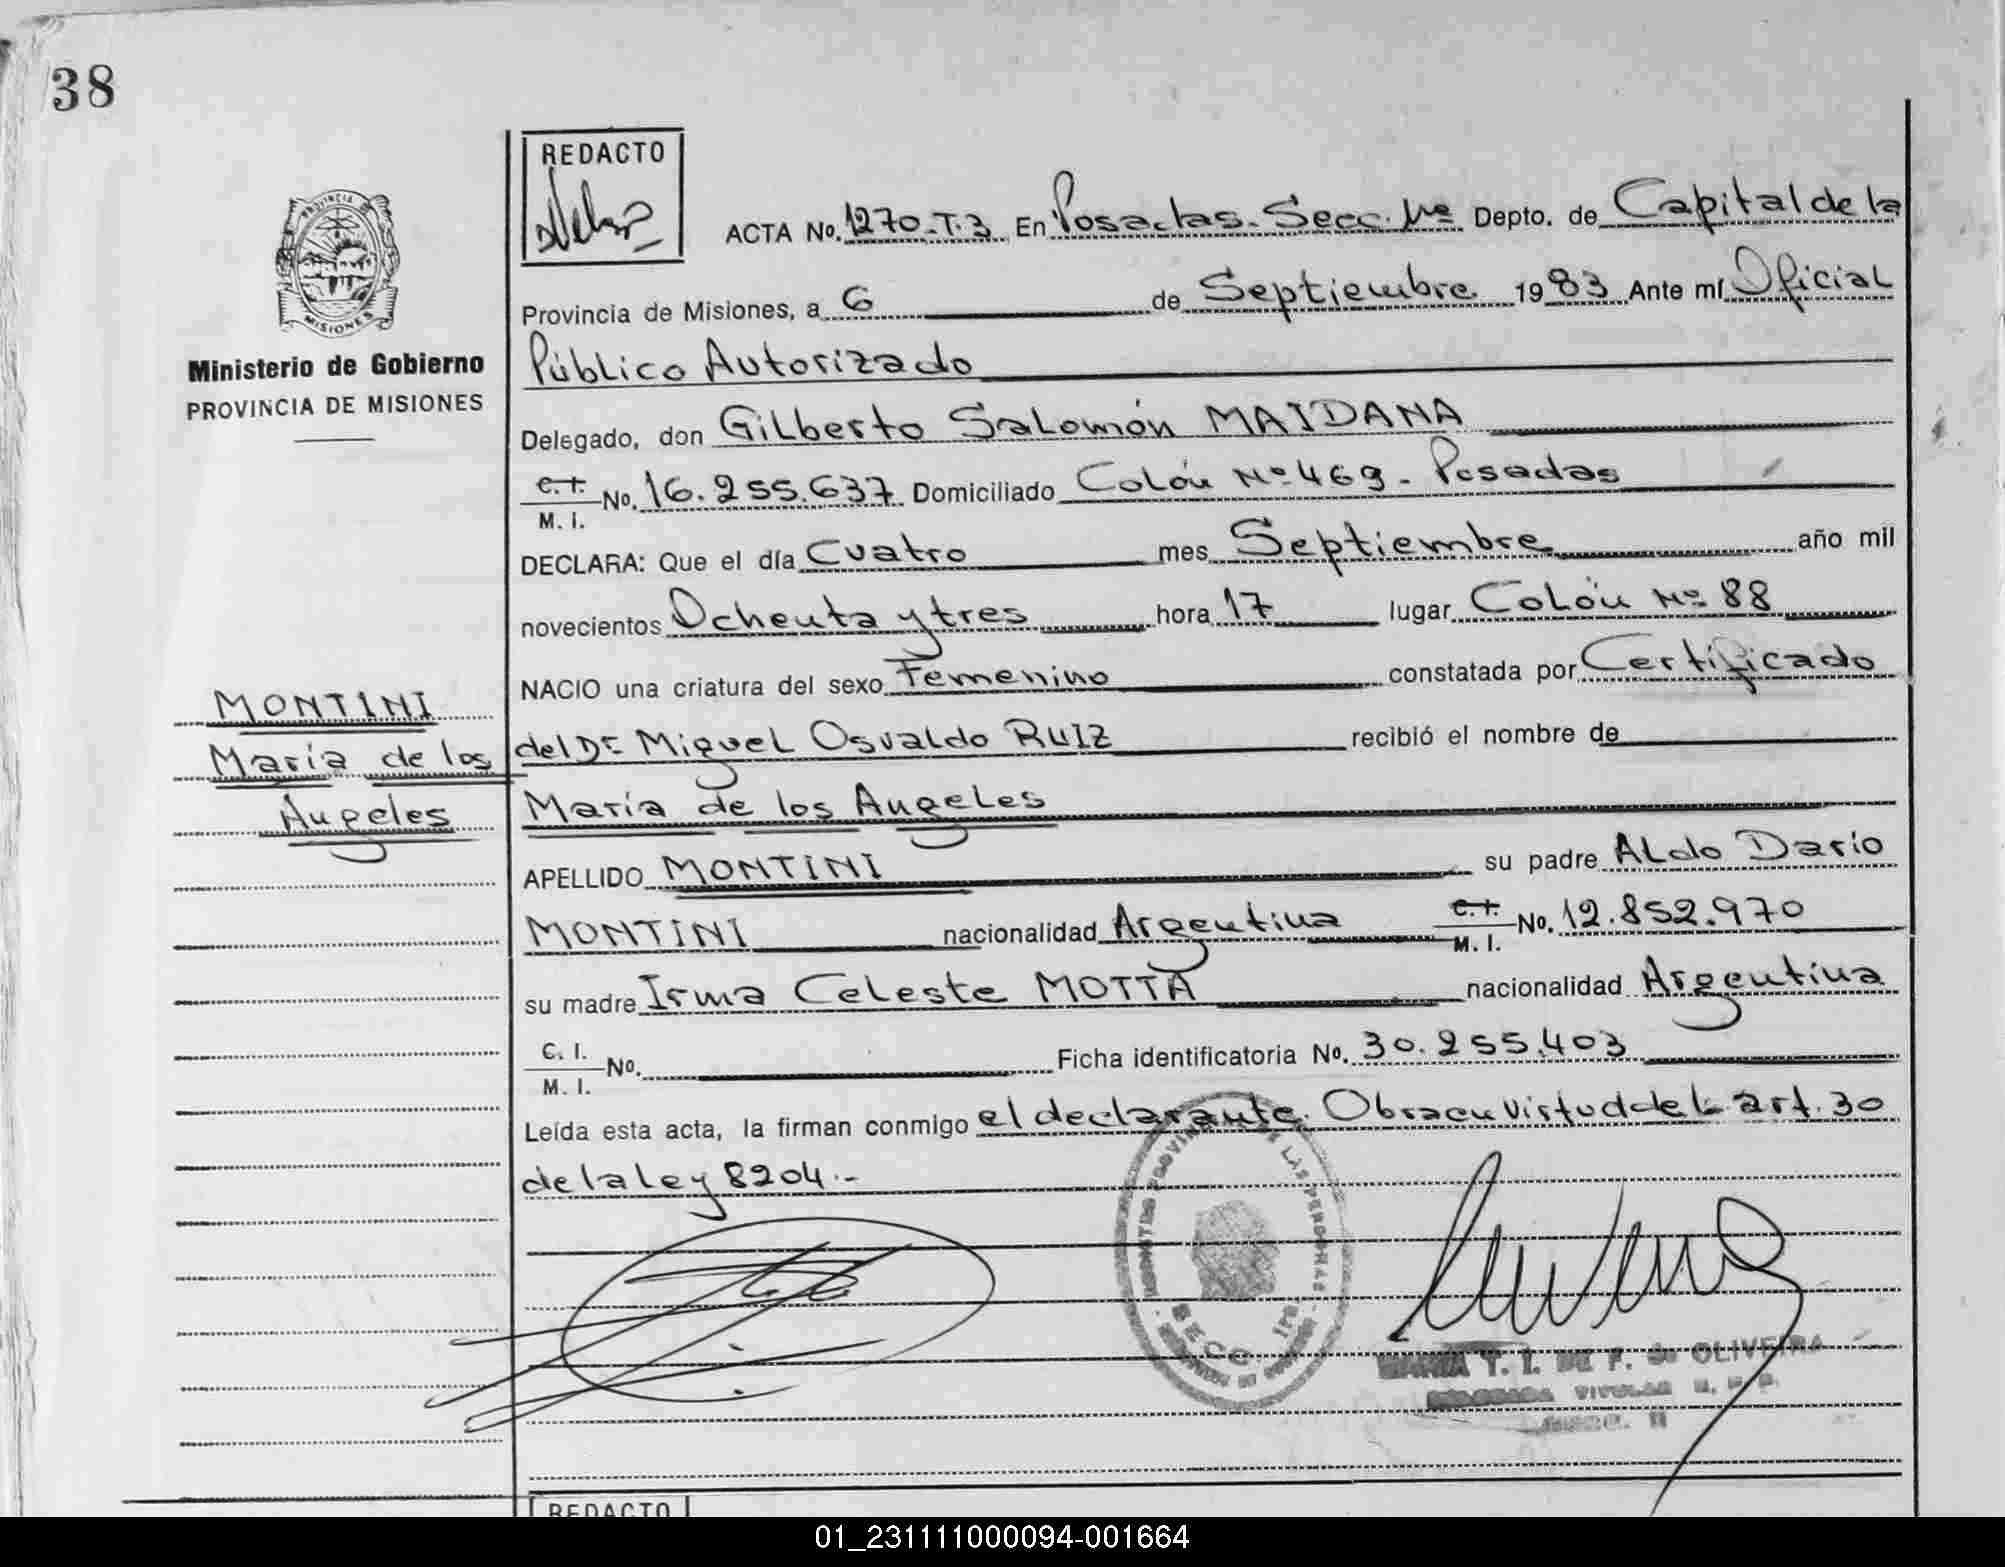 38
REDACTO
PROVINCIA
MISIONES
Ministerio de Gobierno
PROVINCIA DE MISIONES
ACTA No. 1270-T.3 En Posadas-Secc. 1ra Depto. de Capital de la
Provincia de Misiones, a 6 de Septiembre 1983 Ante mí Oficial
Público Autorizado
Delegado, don Gilberto Salomón MAIDANA
C.I. M.I. No. 16.255.637 Domiciliado Colón Nº 469 - Posadas
DECLARA: Que el día Cuatro mes Septiembre año mil
novecientos Ochenta y tres hora 17 lugar Colón Nº 88
NACIO una criatura del sexo Femenino constatada por Certificado
MONTINI
María de los
Angeles
del Dr Miguel Osvaldo RUIZ recibió el nombre de
María de los Angeles
APELLIDO MONTINI su padre Aldo Darío
MONTINI nacionalidad Argentina C.I. M.I. No. 12.852.970
su madre Irma Celeste MOTTA nacionalidad Argentina
C.I. M.I. No. Ficha identificatoria No. 30.255.403
Leída esta acta, la firman conmigo el declarante. Obra en virtud del art. 30
de la Ley 8204.-
LAS PERSONAS
SECC. 1RA
T. I. DE F. OLIVEIRA
TITULAR
REDACTO
01_231111000094-001664